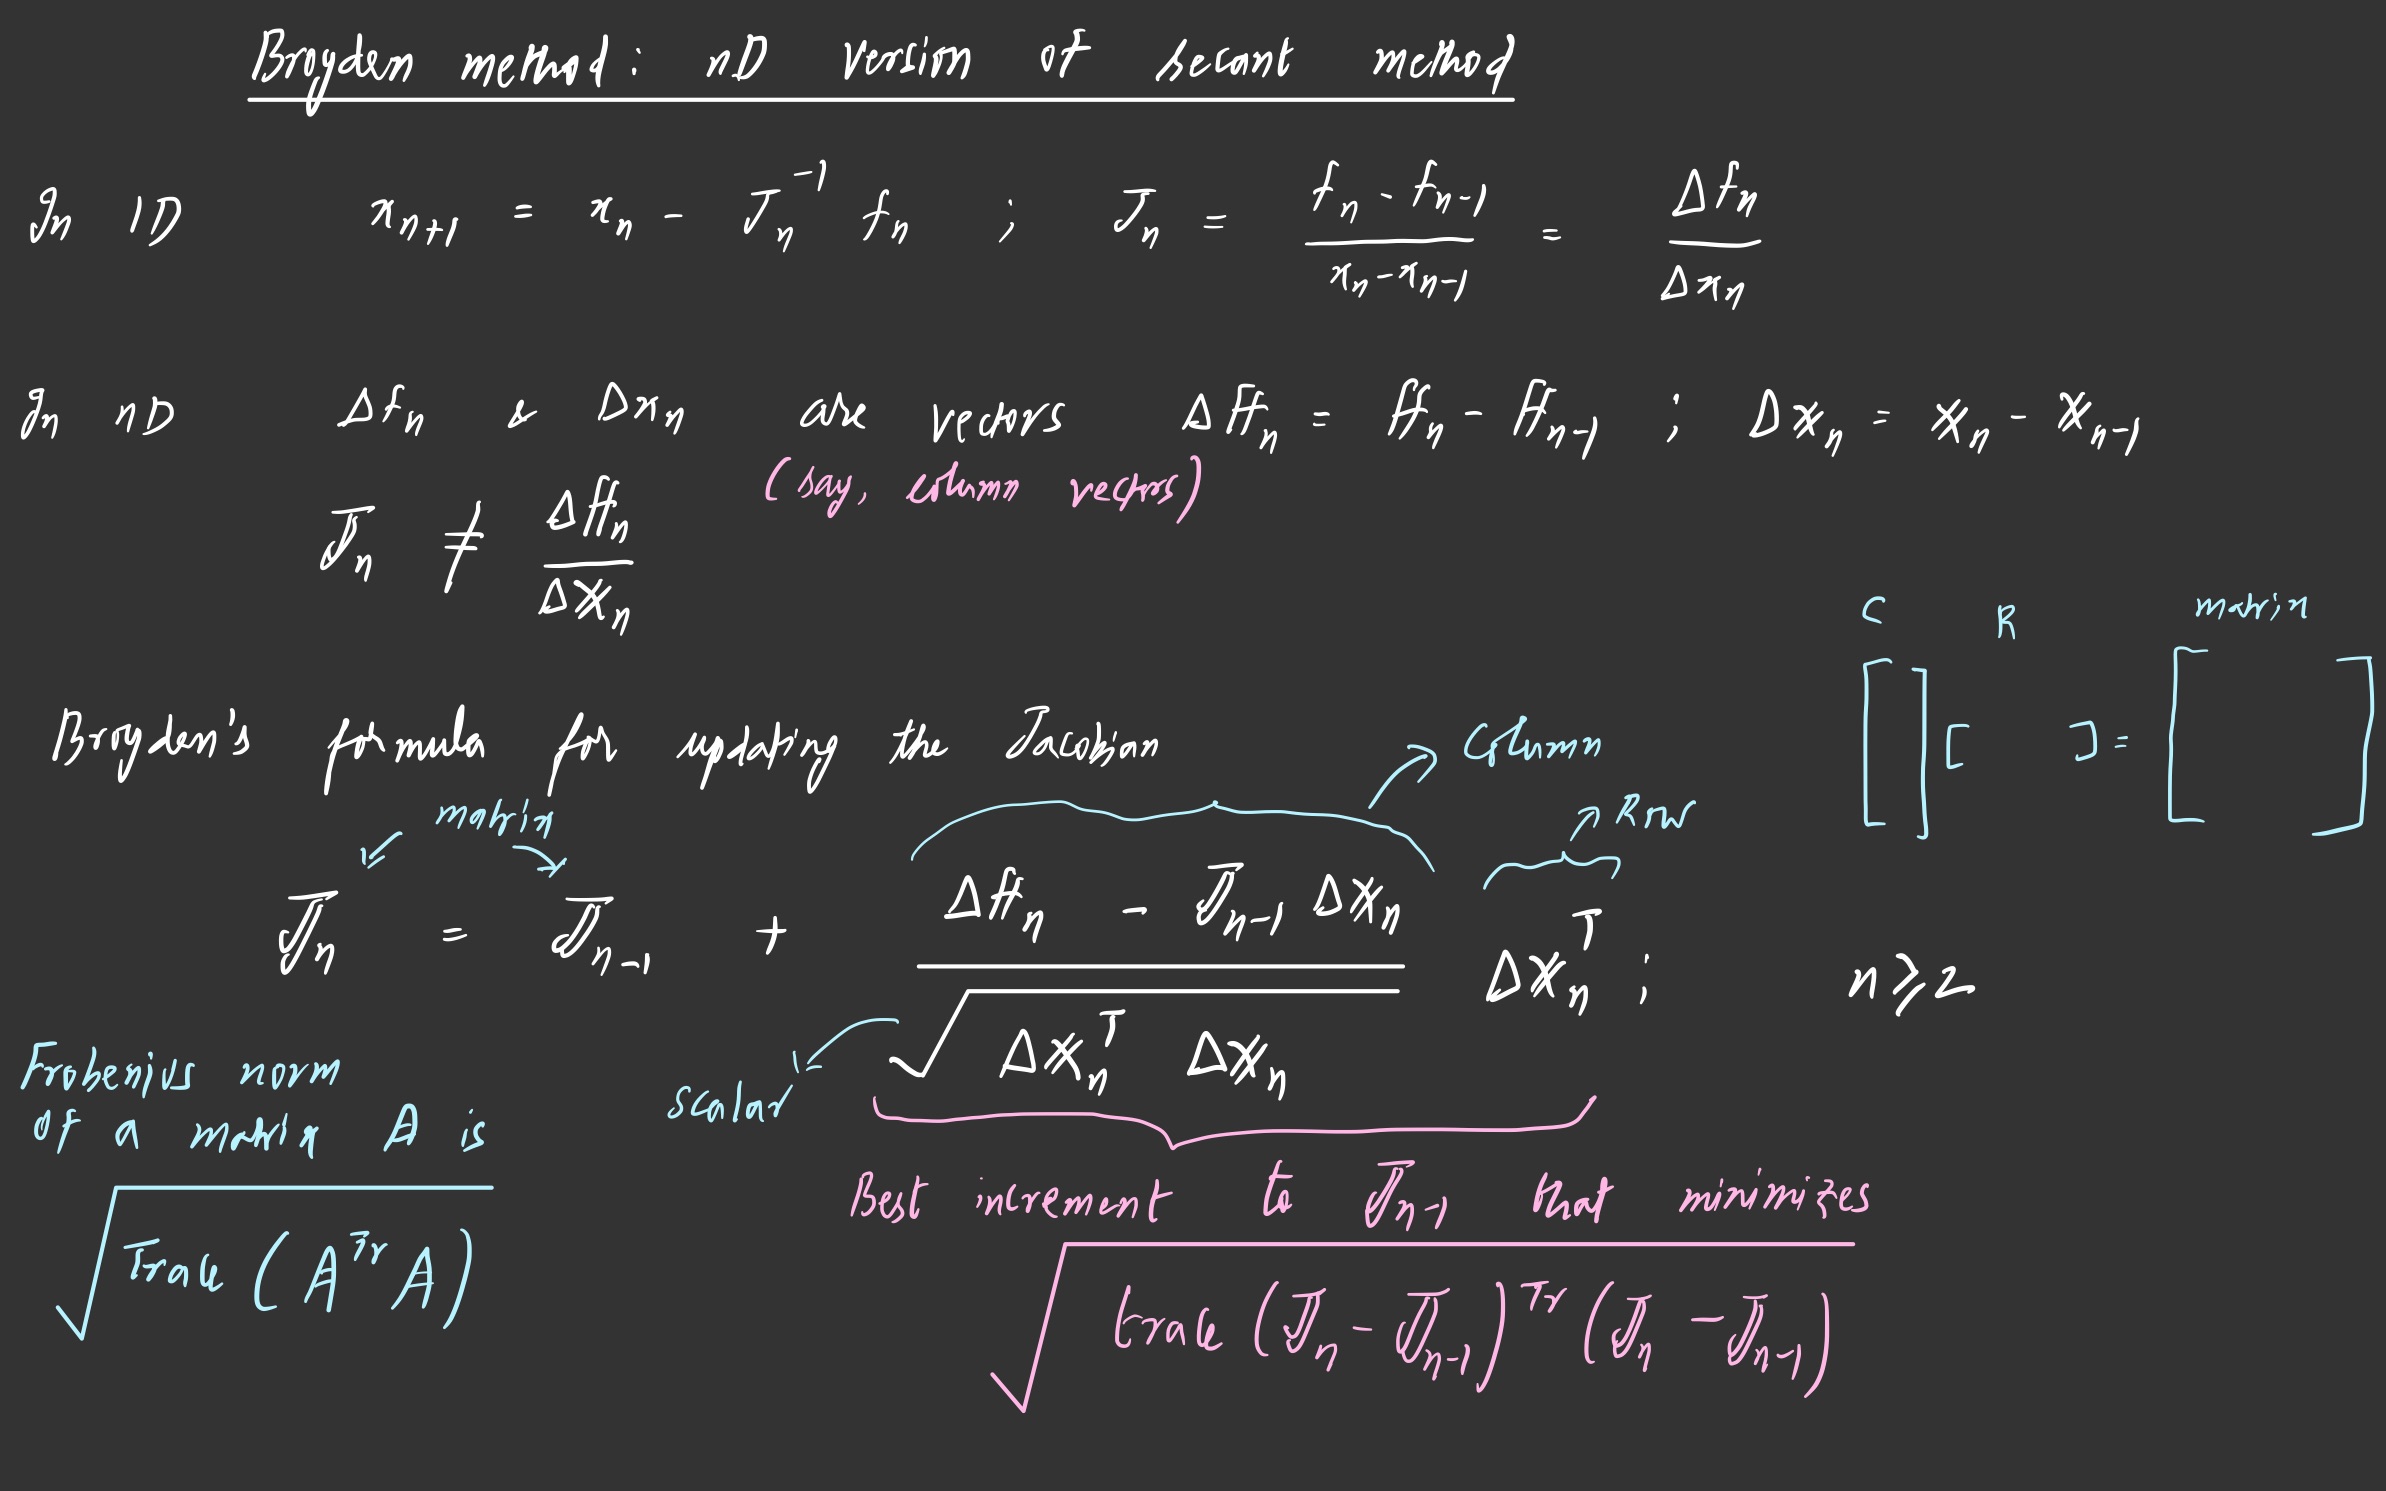 Broyden method: nD version of secant method
In 1D x_{n+1} = x_n - J_n^{-1} f_n ; J_n = (f_n - f_{n-1}) / (x_n - x_{n-1}) = Δf_n / Δx_n
In nD Δf_n & Δx_n are vectors Δf_n = f_n - f_{n-1} ; Δx_n = x_n - x_{n-1}
(say, column vectors)
J_n ≠ Δf_n / Δx_n
C R matrix
[ ] [ ] = [ ]
Broyden's formula for updating the Jacobian
Column
matrix
Row
J_n = J_{n-1} + (Δf_n - J_{n-1} Δx_n) / √(Δx_n^T Δx_n) Δx_n^T ; n ≥ 2
scalar
Frobenius norm
of a matrix A is
√(Trace (A^{Tr} A))
Best increment to J_{n-1} that minimizes
√(trace (J_n - J_{n-1})^{Tr} (J_n - J_{n-1}))